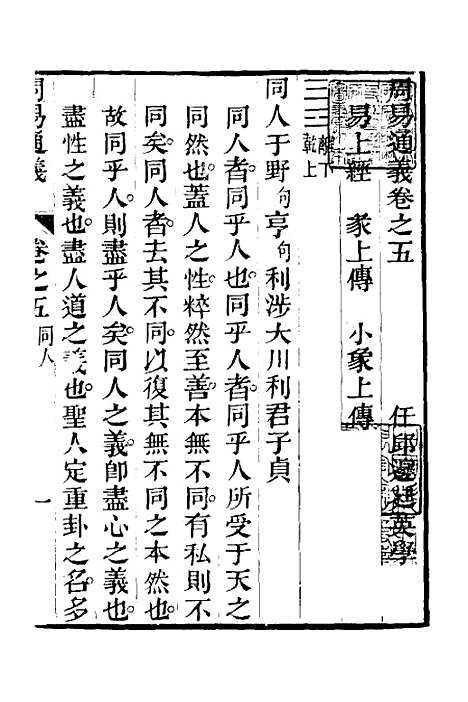 周易通義卷之五
任邱邊廷英學
易上經 彖上傳 小象上傳
離下
乾上
同人于野句亨句利涉大川利君子貞
同人者同乎人也同乎人者同乎人所受于天之
同然也蓋人之性粹然至善本無不同有私則不
同矣同人者去其不同以復其無不同之本然也
故同乎人則盡乎人矣同人之義卽盡心之義也
盡性之義也盡人道之義也聖人定重卦之名多
周易通義 卷之五 同人 一